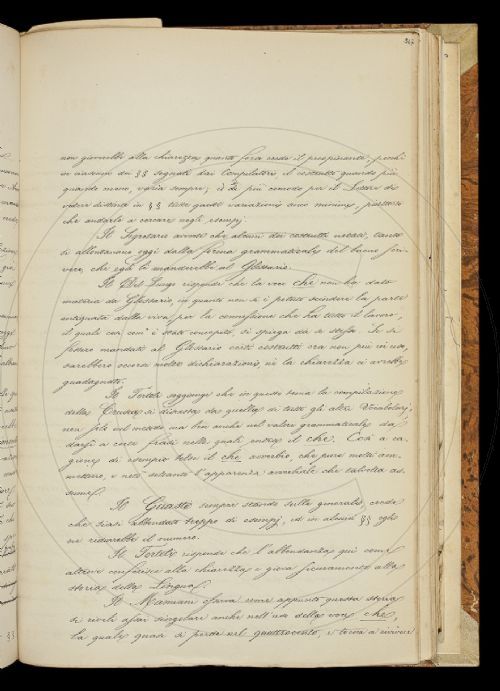 non gioverebbe alla chiarezza quanto forse crede il preopinante, perchè
in ciascuno dei §§ segnati dai Compilatori il costrutto quando più
quando meno varia sempre; ed è più comodo per il Lettore di
vedere distinte in §§ tutte queste variazioni anco minime, piuttosto
che andarle a cercare negli esempj.
Il Segretario avverte che alcuni dei costrutti notati, tanto
si allontanano oggi dalla forma grammaticale del buono scri-
vere, che egli li manderebbe al Glossario.
Il Del Lungo risponde che la voce che non ha dato
materia da Glossario, in quanto non si è potuto scindere la parte
antiquata dalla viva, per la connessione che ha tutto il lavoro,
il quale così com'è stato concepito, si spiega da se stesso. Se si
fossero mandati al Glossario certi costrutti ora non più in uso,
sarebbero occorse molte dichiarazioni, nè la chiarezza ci avrebbe
guadagnato.
Il Tortoli soggiunge che in questo tema la compilazione
della Crusca si discosta da quella di tutti gli altri Vocabolarj,
non solo nel metodo ma ben anche nel valore grammaticale da
darsi a certe frasi nelle quali entra il che. Così a ca-
gione di esempio tolse il che avverbio, che pure molti am-
mettono, e notò soltanto l'apparenza avverbiale che talvolta as-
sume.
Il Guasti sempre stando sulle generali, crede
che siasi abbondato troppo di esempj, ed in alcuni §§ egli
ne ridurrebbe il numero.
Il Tortoli risponde che l'abbondanza qui come
altrove conferisce alla chiarezza e giova sicuramente alla
storia della Lingua.
Il Mamiani osserva come appunto questa storia
si riveli assai singolare anche nell'uso della voce che,
la quale quasi si perde nel quattrocento, e torna a rivivere